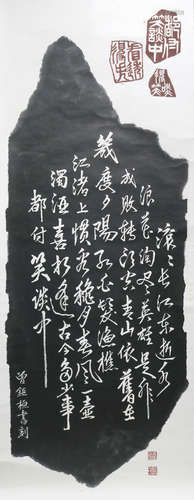 都付笑談中
滚々长江东逝水
浪花淘尽英雄是非
成败转头空青山依舊在
幾度夕陽红白髮漁樵
江渚上惯看秋月春风一壶
濁酒喜相逢古今多少事
都付笑谈中
書刻